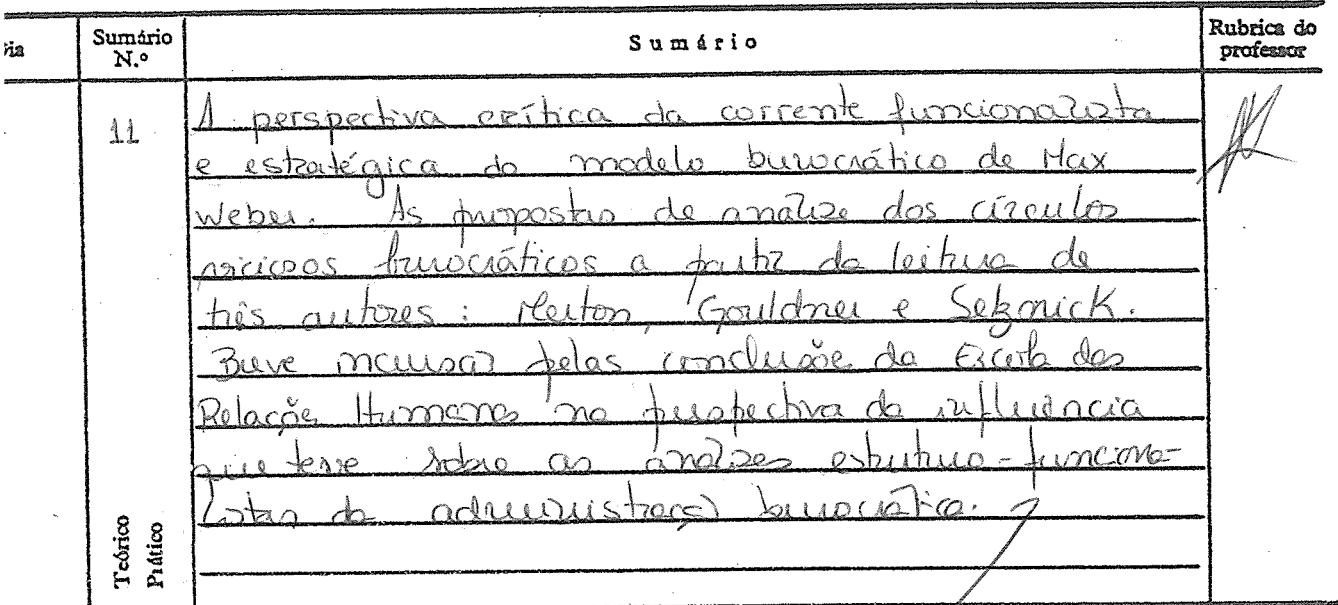 Sumário N.º
Sumário
Rubrica do professor
11
A perspectiva crítica da corrente funcionalista
e estratégica do modelo burocrático de Max
Weber. As propostas de análise dos círculos
viciosos burocráticos a partir da leitura de
três autores: Merton, Gouldner e Selznick.
Breve incursão pelas conclusõe da Escola das
Relaçõe Humanas na perspectiva da influência
que teve sobre as análises estruturo-funciona-
listas da administração burocrática.
Teórico
Prático